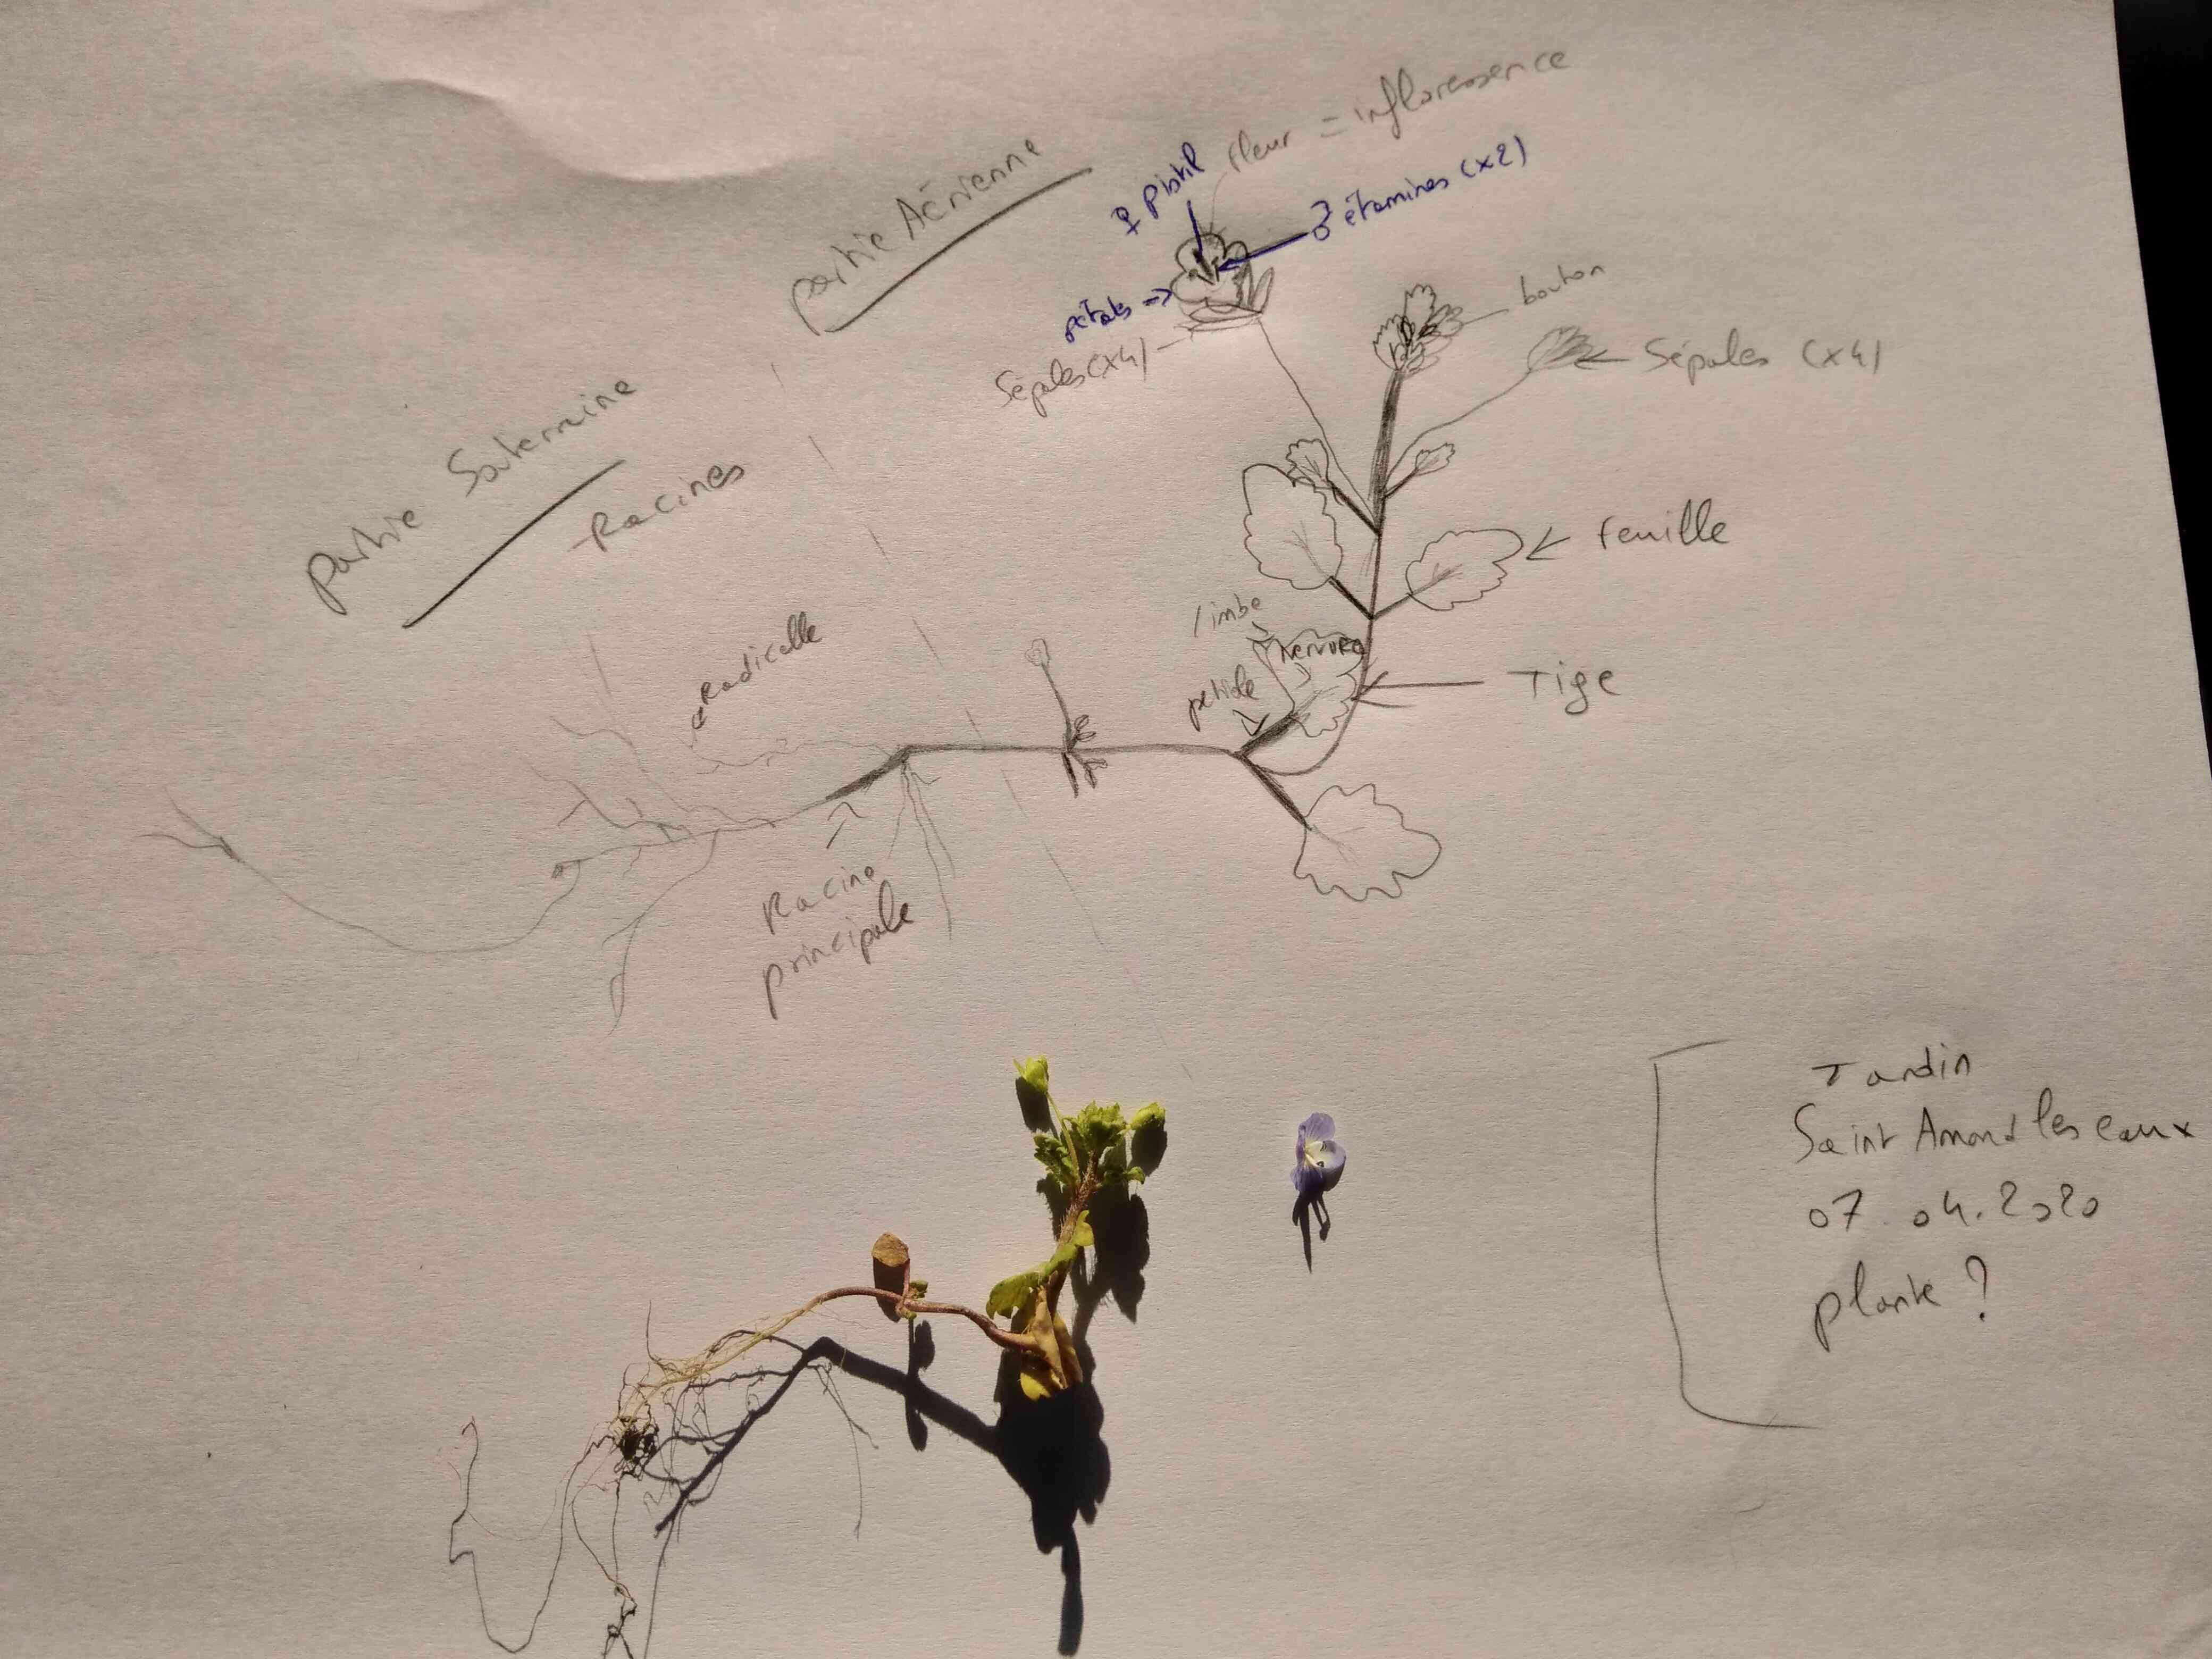 partie Aérienne
fleur = infloressence
♀ pistil
♂ étamines (x2)
pétales →
Sépales (x4)
bouton
Sépales (x4)
partie Souterraine
- Racines
feuille
limbe
nervure
pétiole
Tige
Radicelle
Racine
principale
Jardin
Saint Amand les eaux
07.04.2020
plante ?